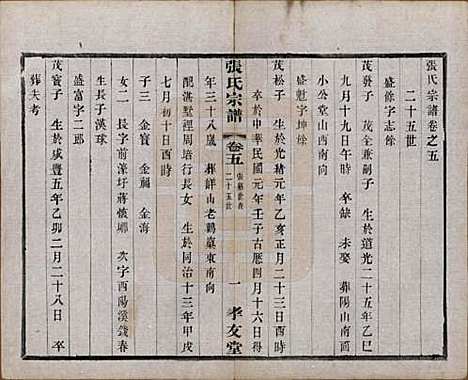 張氏宗譜卷之五
二十五世
盛餘字志餘
茂發子 茂全兼嗣子 生於道光二十五年乙巳
九月十九日午時 卒缺 未娶 葬陽山南面
小公堂山西南向
盛魁字坤餘
茂松子 生於光緒元年乙亥正月二十三日酉時
卒於中華民國元年壬子古歷四月十六日得
張氏宗譜
卷五
二十五世
一
孝友堂
年三十八歲 葬鮮山老鶴巢東南向
配湛墅裡周培行長女 生於同治十三年甲戌
七月初十日酉時
子三 金寶 金福 金海
女二 長字前濠圩蔣懷嘟 次字酉陽溪錢春
生長子漢球
盛富字二郎
茂寶子 生於咸豐五年乙卯二月二十八日 卒
葬失考